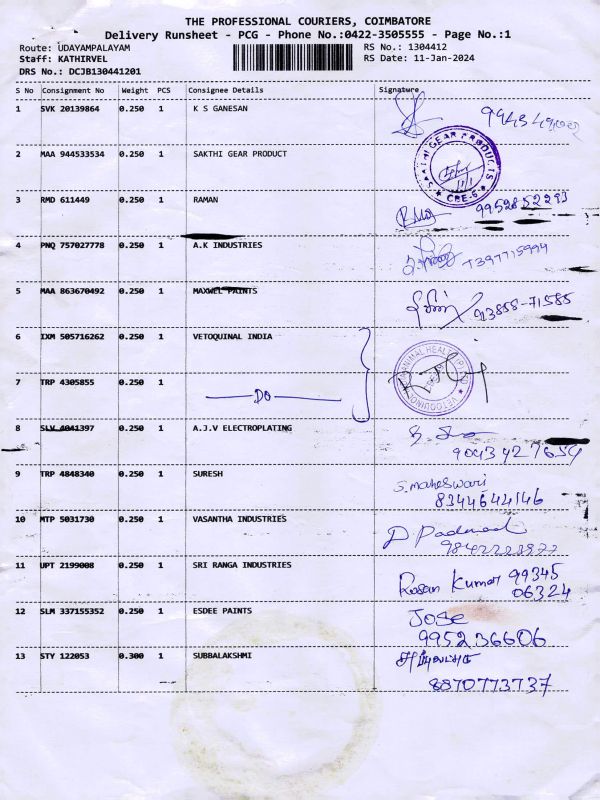 THE PROFESSIONAL COURIERS, COIMBATORE
Delivery Runsheet - PCG - Phone No.:0422-3505555 - Page No.:1
Route: UDAYAMPALAYAM
RS No.: 1304412
Staff: KATHIRVEL
RS Date: 11-Jan-2024
DRS No.: DCJB130441201
S No Consignment No Weight PCS Consignee Details Signature
1 SVK 20139864 0.250 1 K S GANESAN
2 MAA 944533534 0.250 1 SAKTHI GEAR PRODUCT
SAKTHI GEAR PRODUCTS
CBE-6
3 RMD 611449 0.250 1 RAMAN 9952852293
4 PNQ 757027778 0.250 1 A.K INDUSTRIES
5 MAA 863670492 0.250 1 MAXWEL PAINTS 93858-71585
6 IXM 505716262 0.250 1 VETOQUINAL INDIA
7 TRP 4305855 0.250 1 DO
8 SLV 4041397 0.250 1 A.J.V ELECTROPLATING 9043427654
9 TRP 4848340 0.250 1 SURESH S. maheswari
8344644146
10 MTP 5031730 0.250 1 VASANTHA INDUSTRIES
11 UPT 2199008 0.250 1 SRI RANGA INDUSTRIES Rosan Kumar 99345
06324
12 SLM 337155352 0.250 1 ESDEE PAINTS Jose
995236606
13 STY 122053 0.300 1 SUBBALAKSHMI
8870773737